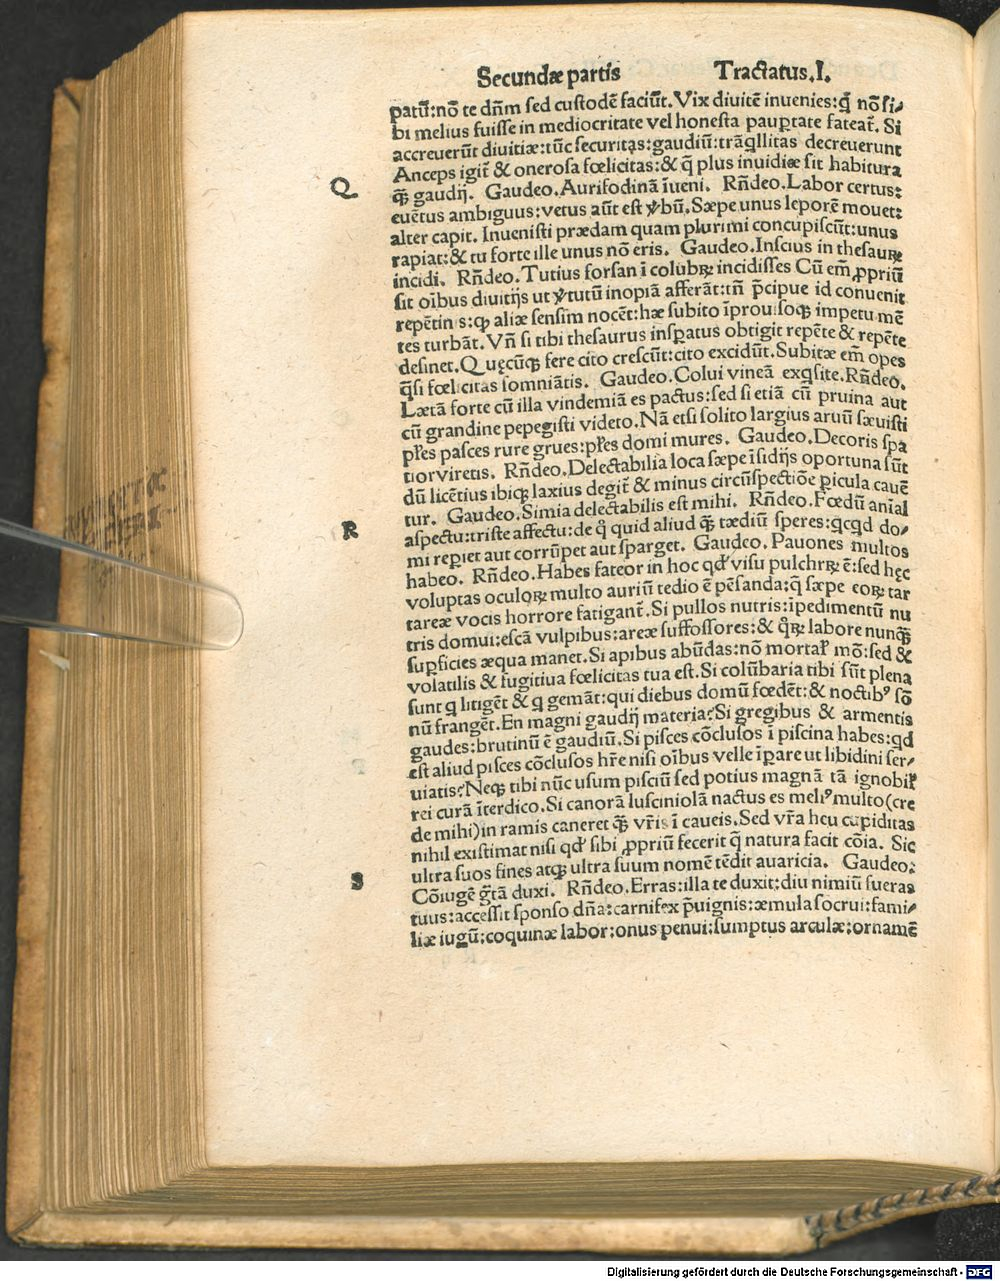 Secundæ partis Tractatus.I.
patū:nō te dñm sed custodē faciūt.Vix diuitē inuenies:q̄ nō si/
bi melius fuisse in mediocritate vel honesta paup̱tate fateat̄. Si
accreuerūt diuitiæ:tūc securitas:gaudiū:trāqllitas decreuerunt
Anceps igit̄ & onerosa fœlicitas:& q̄ plus inuidiæ sit habitura
Q
q̄ꝫ gaudij. Gaudeo.Aurifodinā īueni. Rñdeo.Labor certus:
euētus ambiguus:vetus aūt est v̓bū.Sæpe unus leporē mouet:
alter capit. Inuenisti prædam quam plurimi concupiscūt:unus
rapiat:& tu forte ille unus nō eris. Gaudeo.Inscius in thesauꝝ
incidi. Rñdeo.Tutius forsan ī colubꝝ incidisses Cū em̄ ꝓpriū
sit oībus diuitijs ut v̓tutū inopiā afferāt:tñ p̄cipue id conuenit
repētinis:qꝫ aliæ sensim nocēt:hæ subito īprouisoqꝫ impetu mē
tes turbāt.Vñ si tibi thesaurus insꝑatus obtigit repēte & repēte
desinet.Quęcūqꝫ fere cito crescūt:cito excidūt.Subitæ em̄ opes
q̄si fœlicitas somniātis. Gaudeo.Colui vineā exqsite.Rñdeo.
Lætā forte cū illa vindemiā es pactus:sed si etiā cū pruina aut
cū grandine pepegisti videto.Nā etsi solito largius aruū sæuisti
pl̄es pasces rure grues:pl̄es domi mures. Gaudeo.Decoris spa
tior viretis. Rñdeo.Delectabilia loca sæpe īsidijs oportuna sūt
dū licētius ibiqꝫ laxius degit̄ & minus circūspectiōe ꝑicula cauē
tur. Gaudeo.Simia delectabilis est mihi. Rñdeo.Fœdū aīal
R
aspectu:triste affectu:de q̄ quid aliud q̄ꝫ tædiū speres:qcqd do/
mi reꝑiet aut corrūpet aut sparget. Gaudeo.Pauones multos
habeo. Rñdeo.Habes fateor in hoc qd̓ visu pulchrꝝ ē:sed hęc
voluptas oculoꝝ multo auriū tedio ē pēsanda:q̄ sæpe eoꝝ tar
tareæ vocis horrore fatigant̄.Si pullos nutris:īpedimentū nu
tris domui:escā vulpibus:areæ suffossores:& q̄ꝝ labore nunq̄ꝫ
suꝑficies æqua manet.Si apibus abūdas:nō mortal̓ mō:sed &
volatilis & fugitiua fœlicitas tua est.Si colūbaria tibi sūt plena
sunt q litigēt & q gemāt:qui diebus domū fœdēt:& noctibꝰ sō
nū frangēt.En magni gaudij materia?Si gregibus & armentis
gaudes:brutinū ē gaudiū.Si pisces cōclusos ī piscina habes:qd
est aliud pisces cōclusos hr̄e nisi oībus velle īꝑare ut libidini ser/
uiatis?Neqꝫ tibi nūc usum pisciū sed potius magnā tā ignobil̓
rei curā īterdico.Si canorā lusciniolā nactus es meliꝰ multo(cre
de mihi)in ramis caneret q̄ꝫ vr̄is ī caueis.Sed vr̄a heu cupiditas
nihil existimat nisi qd̓ sibi ꝓpriū fecerit q̄ natura facit cōia. Sic
ultra suos fines atqꝫ ultra suum nomē tēdit auaricia. Gaudeo:
S
Cōiugē gr̄tā duxi. Rñdeo.Erras:illa te duxit:diu nimiū fueras
tuus:accessit sponso dña:carnifex p̄uignis:æmula socrui:fami/
liæ iugū:coquinæ labor:onus penui:sumptus arculæ:ornamē
Digitalisierung gefördert durch die Deutsche Forschungsgemeinschaft - DFG